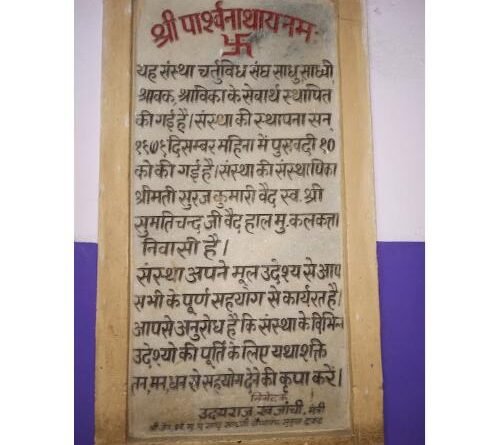 श्री पार्श्वनाथाय नमः
यह संस्था चर्तुविध संघ साधु, साध्वी,
श्रावक, श्राविका के सेवार्थ स्थापित
की गई है। संस्था की स्थापना सन्
१९७६ दिसम्बर महिना में पुष वदी १०
को की गई है। संस्था की संस्थापिका
श्रीमती सुरज कुमारी वैद स्व. श्री
सुमतिचन्द जी वैद हाल मु. कलकत्ता
निवासी है।
संस्था अपने मूल उदेश्य से आप
सभी के पूर्ण सहयोग से कार्यरत है।
आपसे अनुरोध है कि संस्था के विभिन्न
उदेश्यो की पूर्ति के लिए यथाशक्ति
तन, मन, धन से सहयोग देने की कृपा करें।
निवेदक
उदयराज खजांची, मंत्री